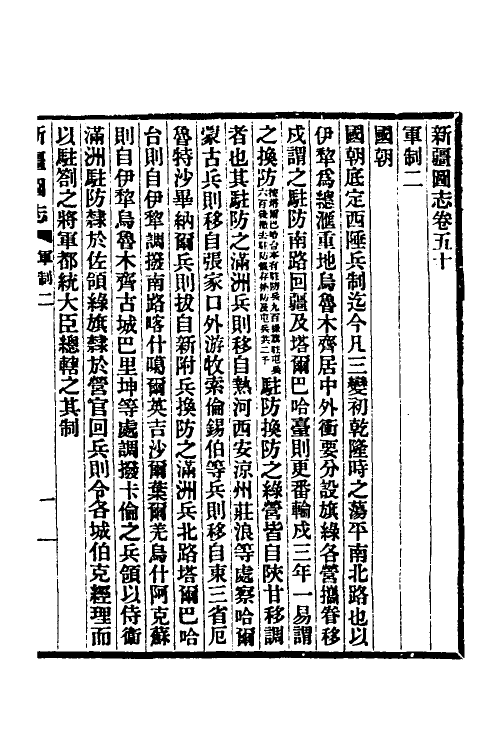 新疆圖志卷五十
軍制二
國朝
國朝底定西陲兵制迄今凡三變初乾隆時之蕩平南北路也以
伊犂爲總滙重地烏魯木齊居中外衝要分設旗綠各營攜眷移
戍謂之駐防南路回疆及塔爾巴哈臺則更番輪戍三年一易謂
之換防
駐防換防之綠營皆自陝甘移調
者也其駐防之滿洲兵則移自熱河西安涼州莊浪等處察哈爾
蒙古兵則移自張家口外游牧索倫錫伯等兵則移自東三省厄
魯特沙畢納爾兵則拔自新附兵換防之滿洲兵北路塔爾巴哈
台則自伊犂調撥南路喀什噶爾英吉沙爾葉爾羌烏什阿克蘇
則自伊犂烏魯木齊古城巴里坤等處調撥卡倫之兵領以侍衛
滿洲駐防隸於佐領綠旗隸於營官回兵則令各城伯克經理而
以駐劄之將軍都統大臣總轄之其制
新疆圖志
軍制二